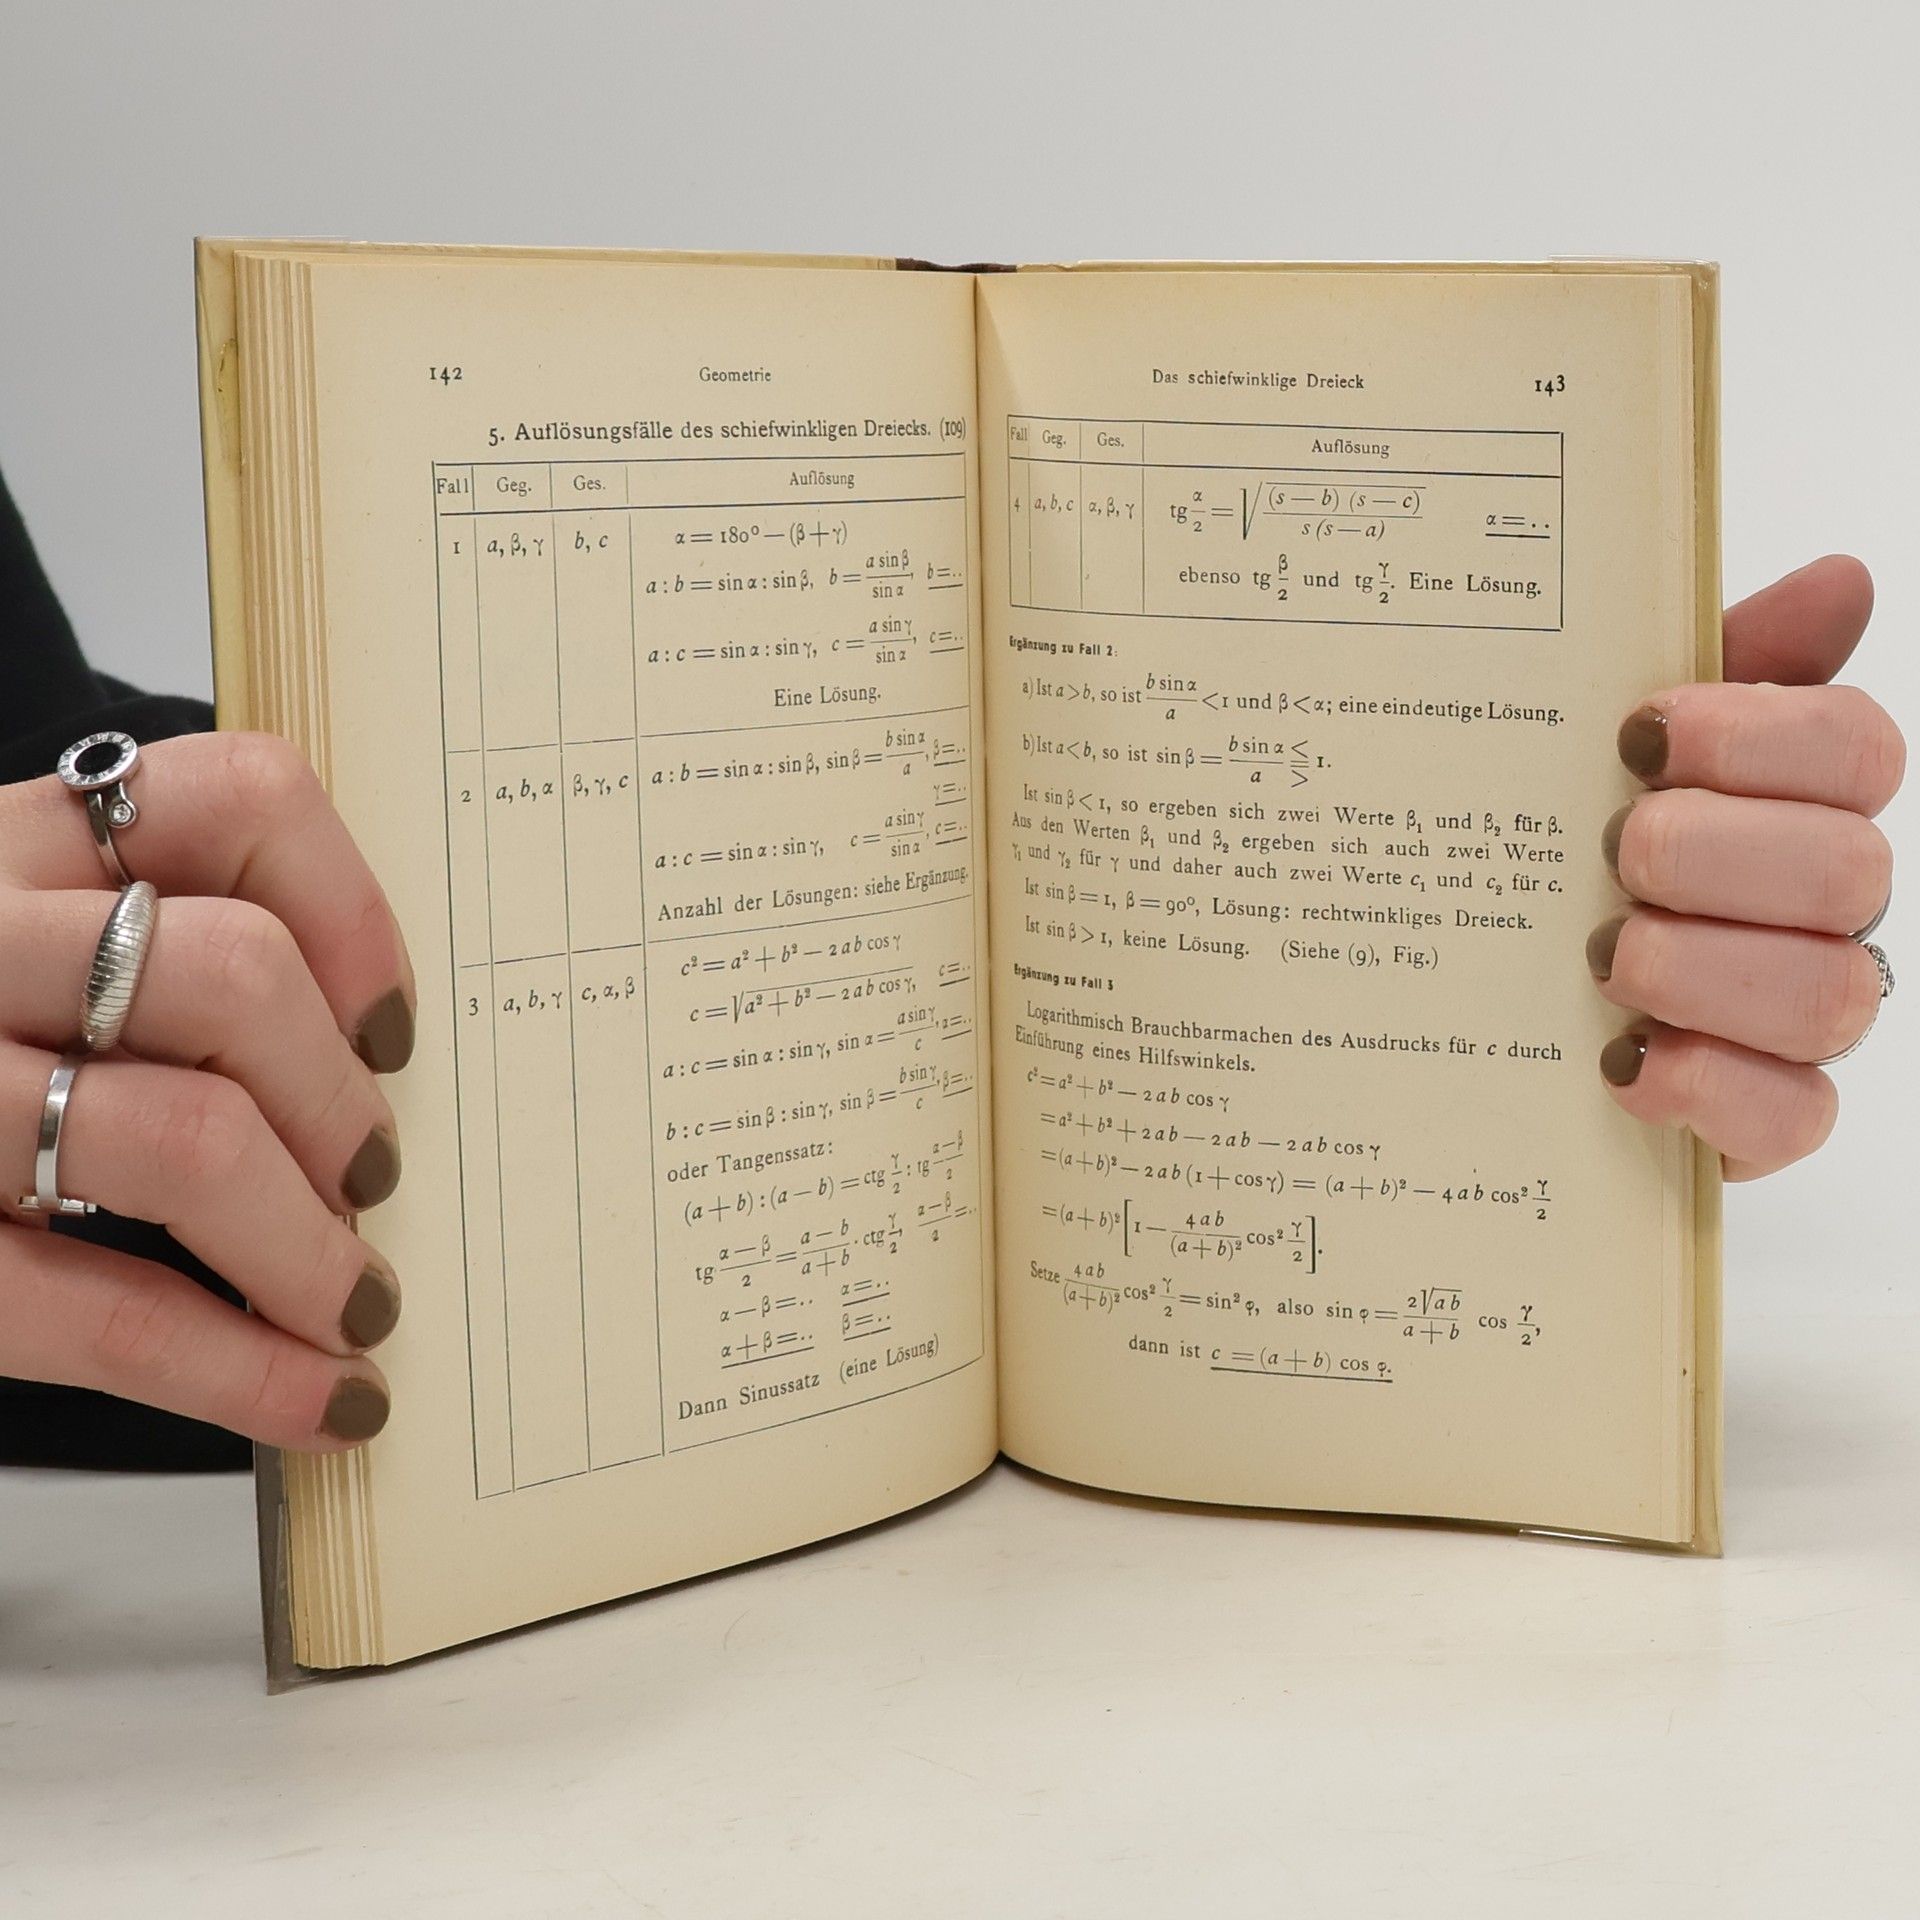 142 Geometrie
5. Auflösungsfälle des schiefwinkligen Dreiecks. (109)
Fall Geg. Ges. Auflösung
1 a, β, γ b, c α = 180° — (β + γ)
a : b = sin α : sin β, b = a sin β / sin α, b = ..
a : c = sin α : sin γ, c = a sin γ / sin α, c = ..
Eine Lösung.
2 a, b, α β, γ, c a : b = sin α : sin β, sin β = b sin α / a, β = ..
γ = ..
a : c = sin α : sin γ, c = a sin γ / sin α, c = ..
Anzahl der Lösungen: siehe Ergänzung.
3 a, b, γ c, α, β c² = a² + b² — 2 ab cos γ
c = √(a² + b² — 2 ab cos γ), c = ..
a : c = sin α : sin γ, sin α = a sin γ / c, α = ..
b : c = sin β : sin γ, sin β = b sin γ / c, β = ..
oder Tangenssatz:
(a + b) : (a — b) = ctg γ/2 : tg (α — β)/2
tg (α — β)/2 = (a — b)/(a + b) · ctg γ/2, (α — β)/2 = ..
α — β = .. α = ..
α + β = .. β = ..
Dann Sinussatz (eine Lösung)
Das schiefwinklige Dreieck 143
Fall Geg. Ges. Auflösung
4 a, b, c α, β, γ tg α/2 = √((s — b) (s — c) / s (s — a)) α = ..
ebenso tg β/2 und tg γ/2. Eine Lösung.
Ergänzung zu Fall 2:
a) Ist a > b, so ist b sin α / a < 1 und β < α; eine eindeutige Lösung.
b) Ist a < b, so ist sin β = b sin α / a ⪋ 1.
Ist sin β < 1, so ergeben sich zwei Werte β₁ und β₂ für β.
Aus den Werten β₁ und β₂ ergeben sich auch zwei Werte
γ₁ und γ₂ für γ und daher auch zwei Werte c₁ und c₂ für c.
Ist sin β = 1, β = 90°, Lösung: rechtwinkliges Dreieck.
Ist sin β > 1, keine Lösung. (Siehe (9), Fig.)
Ergänzung zu Fall 3
Logarithmisch Brauchbarmachen des Ausdrucks für c durch
Einführung eines Hilfswinkels.
c² = a² + b² — 2 ab cos γ
= a² + b² + 2 ab — 2 ab — 2 ab cos γ
= (a + b)² — 2 ab (1 + cos γ) = (a + b)² — 4 ab cos² γ/2
= (a + b)² [1 — 4 ab/(a + b)² cos² γ/2].
Setze 4 ab/(a + b)² cos² γ/2 = sin² φ, also sin φ = 2√ab/(a + b) cos γ/2,
dann ist c = (a + b) cos φ.